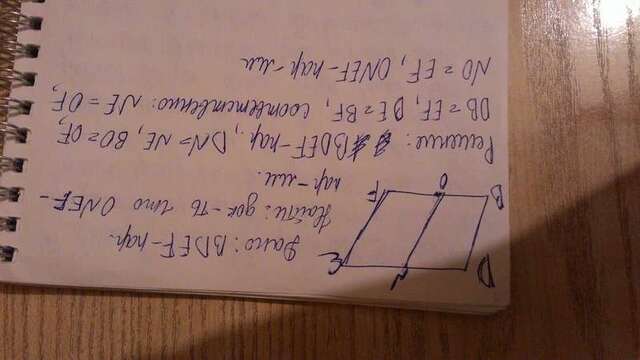 D N E
B O F
Дано: BDEF-пар.
Найти: док-ть что ONEF-
пар-мм.
Решение: BDEF-пар., DN=NE, BO=OF,
DB=EF, DE=BF, соответственно: NE=OF,
NO=EF, ONEF-пар-мм.